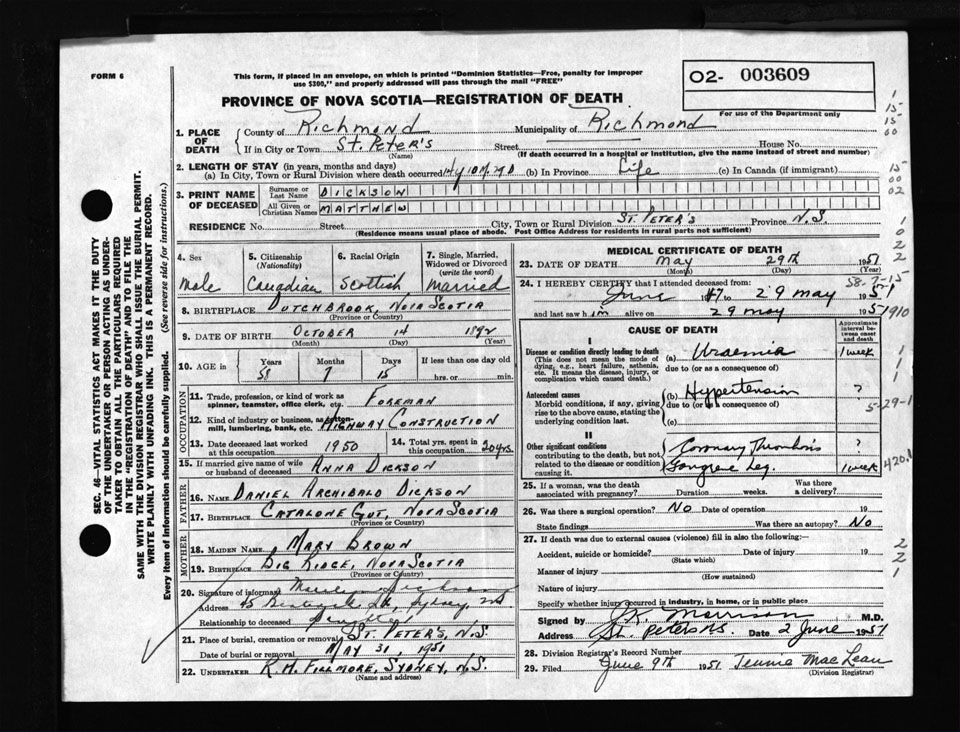 FORM 6
This form, if placed in an envelope, on which is printed "Dominion Statistics—Free, penalty for improper
use $300," and properly addressed will pass through the mail "FREE"
O2- 003609
PROVINCE OF NOVA SCOTIA—REGISTRATION OF DEATH
For use of the Department only
1. PLACE OF DEATH
County of Richmond Municipality of Richmond
If in City or Town St. Peter's Street House No.
(Name) (If death occurred in a hospital or institution, give the name instead of street and number)
2. LENGTH OF STAY (in years, months and days)
(a) In City, Town or Rural Division where death occurred (b) In Province Life (c) In Canada (if immigrant)
3. PRINT NAME OF DECEASED
Surname or Last Name DICKSON
All Given or Christian Names MATTHEW
RESIDENCE No. Street City, Town or Rural Division ST. PETER'S Province N.S.
(Residence means usual place of abode. Post Office Address for residents in rural parts not sufficient)
4. Sex Male
5. Citizenship (Nationality) Canadian
6. Racial Origin Scottish
7. Single, Married, Widowed or Divorced (write the word) Married
8. BIRTHPLACE DUTCHBROOK, NOVA SCOTIA
(Province or Country)
9. DATE OF BIRTH OCTOBER 14 1892
(Month) (Day) (Year)
10. AGE in Years 58 Months 7 Days 15 If less than one day old hrs. or min.
OCCUPATION
11. Trade, profession, or kind of work as spinner, teamster, office clerk, etc. FOREMAN
12. Kind of industry or business, as cotton-mill, lumbering, bank, etc. HIGHWAY CONSTRUCTION
13. Date deceased last worked at this occupation 1950 14. Total yrs. spent in this occupation 20 yrs.
15. If married give name of wife or husband of deceased ANNA DICKSON
FATHER
16. NAME DANIEL ARCHIBALD DICKSON
17. BIRTHPLACE CATALONE GUT, NOVA SCOTIA
(Province or Country)
MOTHER
18. MAIDEN NAME MARY BROWN
19. BIRTHPLACE BIG RIDGE, NOVA SCOTIA
(Province or Country)
20. Signature of informant
Address 45 Sydney, NS
Relationship to deceased
21. Place of burial, cremation or removal ST. PETER'S, N.S.
Date of burial or removal MAY 31, 1951
22. UNDERTAKER R.H. FILLMORE, SYDNEY, N.S.
(Name and address)
MEDICAL CERTIFICATE OF DEATH
23. DATE OF DEATH May 29th 1951
(Month) (Day) (Year)
24. I HEREBY CERTIFY that I attended deceased from:
June 1947 to 29 May 1951
and last saw him alive on 29 may 1951
CAUSE OF DEATH
Approximate interval between onset and death
I
Disease or condition directly leading to death (a) Uraemia 1 week
(This does not mean the mode of dying, e.g., heart failure, asthenia, etc. It means the disease, injury, or complication which caused death.) due to (or as a consequence of)
Antecedent causes (b) Hypertension ?
Morbid conditions, if any, giving rise to the above cause, stating the underlying condition last. due to (or as a consequence of)
(c)
II
Other significant conditions contributing to the death, but not related to the disease or condition causing it.
Coronary Thrombosis ?
Gangrene Leg. 1 week
25. If a woman, was the death associated with pregnancy? Duration weeks. Was there a delivery?
26. Was there a surgical operation? No Date of operation 19
State findings Was there an autopsy? No
27. If death was due to external causes (violence) fill in also the following:—
Accident, suicide or homicide? Date of injury 19
(State which)
Manner of injury
(How sustained)
Nature of injury
Specify whether injury occurred in industry, in home, or in public place
Signed by Morrison M.D.
Address St. Peters NS. Date 2 June 1951
28. Division Registrar's Record Number
29. Filed June 9th 1951 Jennie MacLean
(Division Registrar)
SEC. 46—VITAL STATISTICS ACT MAKES IT THE DUTY
OF THE UNDERTAKER OR PERSON ACTING AS UNDER-
TAKER TO OBTAIN ALL THE PARTICULARS REQUIRED
IN THE "REGISTRATION OF DEATH" AND TO FILE THE
SAME WITH THE DIVISION REGISTRAR WHO SHALL ISSUE THE BURIAL PERMIT.
WRITE PLAINLY WITH UNFADING INK. THIS IS A PERMANENT RECORD.
Every item of information should be carefully supplied. (See reverse side for instructions.)
1
15
15
60
15
00
02
1
0
2
2
58-7-15
910
1
1
1
5-29-1
420.1
2
2
1